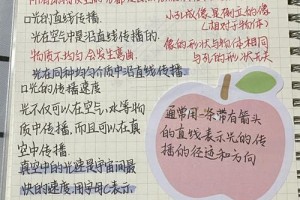 口光的直线传播
光在空气中是沿直线传播的.
物质不均匀会发生弯曲.
光在同种均匀介质中沿直线传播
口光的传播速度
光不仅可以在空气,水等物
质中传播,而且可以在真
空中传播.
真空中的光速是宇宙间最
快的速度.用字母C表示.
小孔成像是倒立的像
(相对于物体)
像的形状与物体相同
与孔的形状无关
通常用一条带有箭头
的直线表示光的传
播的径迹和方向